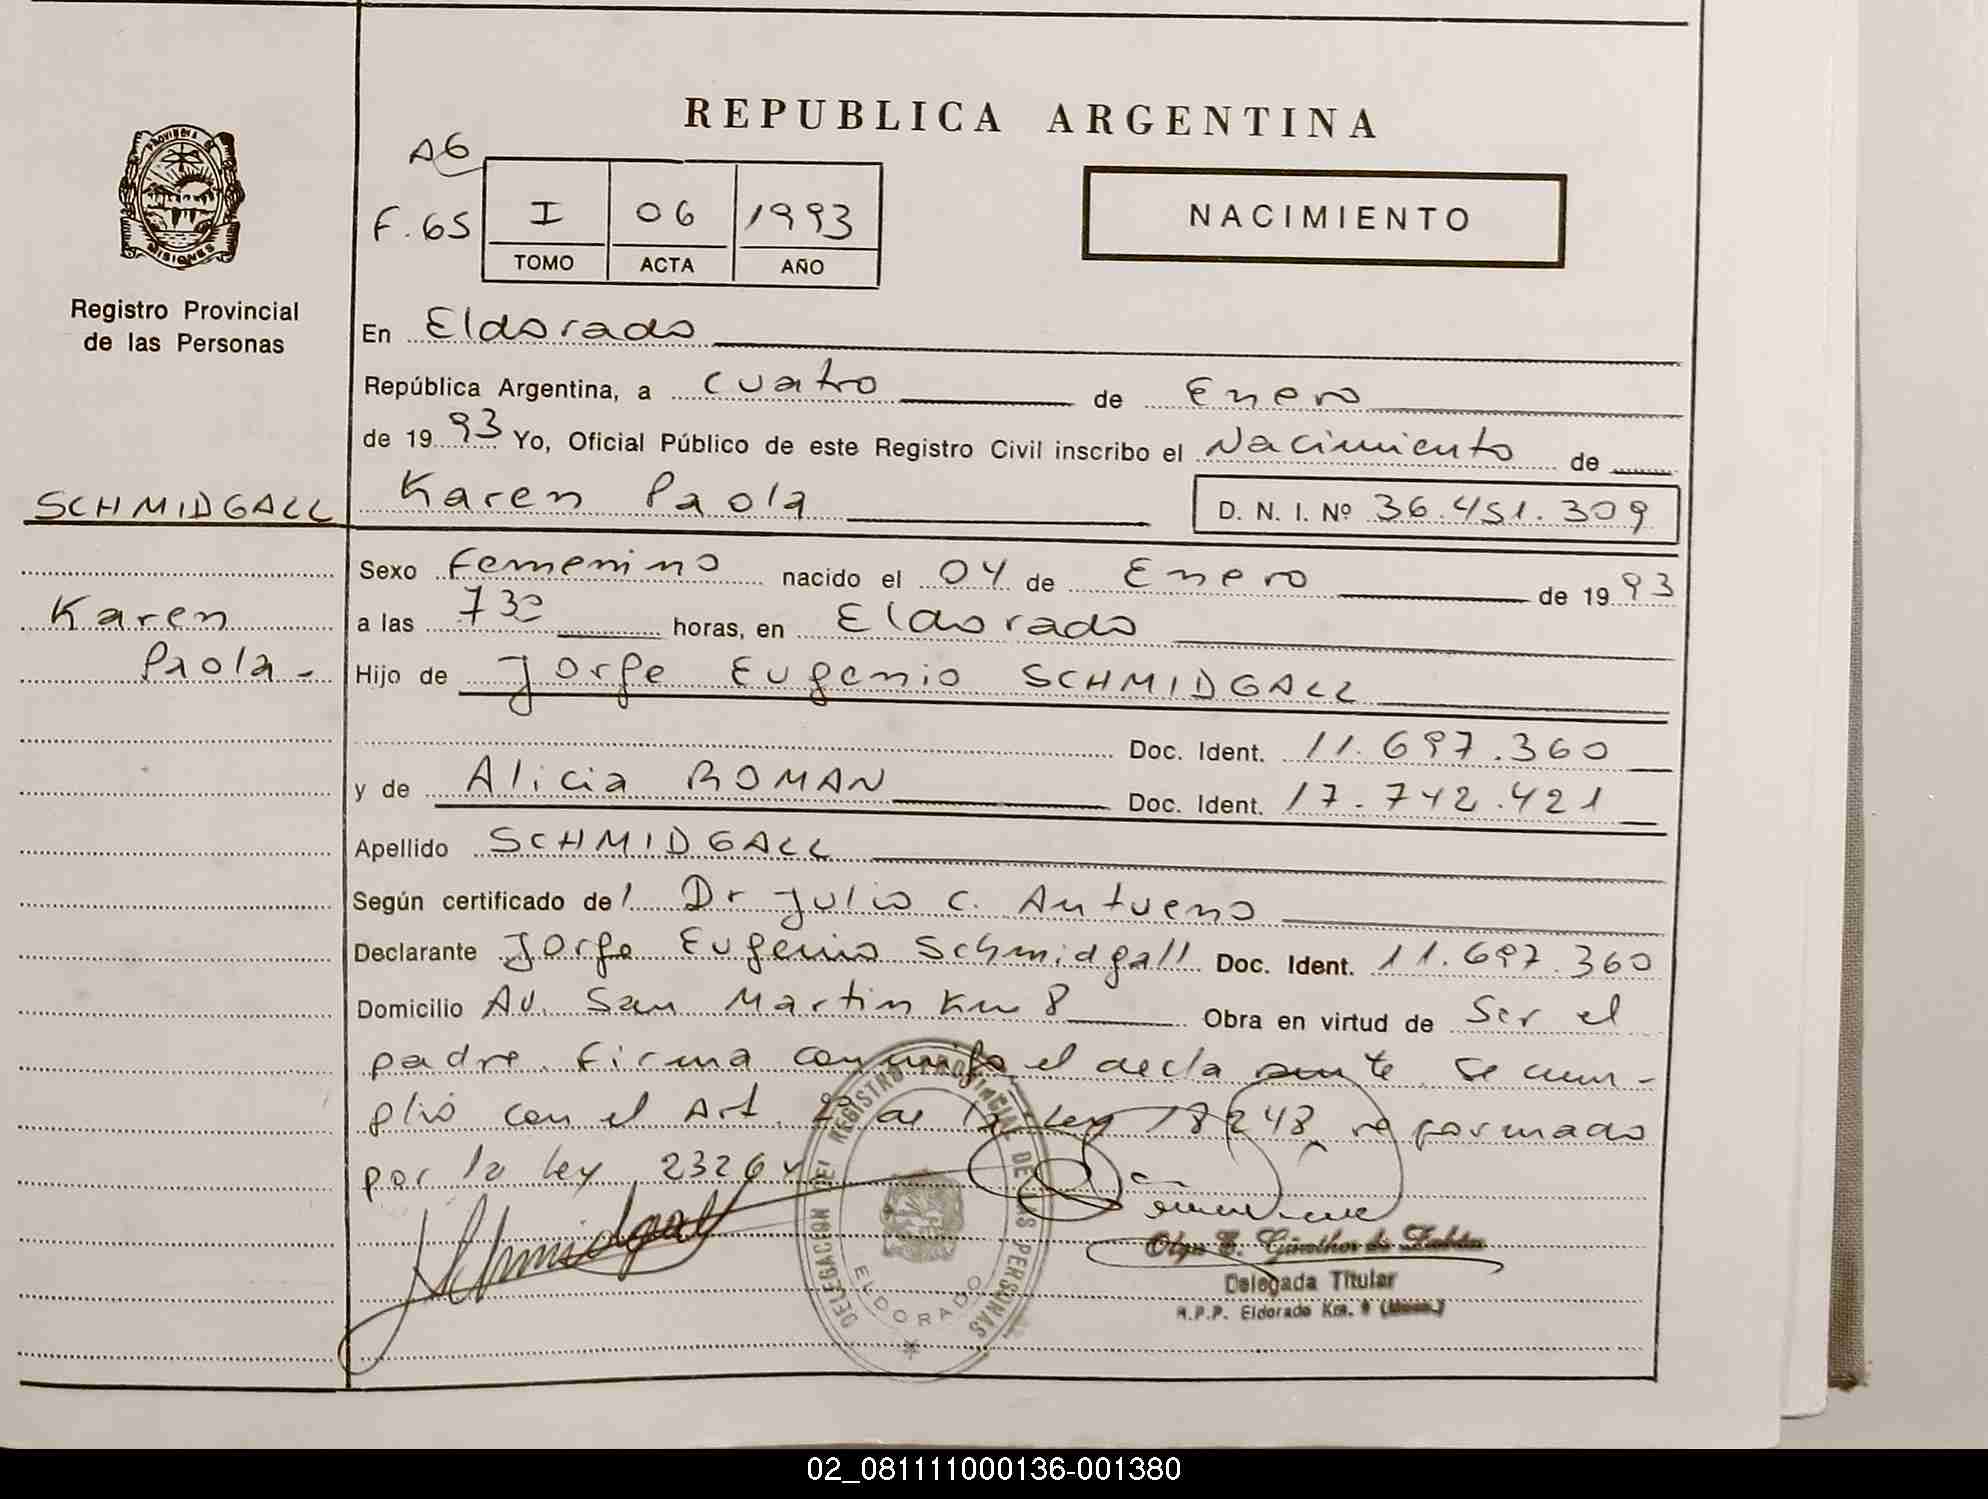 REPUBLICA ARGENTINA
A6
F. 65
I 06 1993
TOMO ACTA AÑO
NACIMIENTO
PROVINCIA
MISIONES
Registro Provincial
de las Personas
En Eldorado
República Argentina, a cuatro de Enero
de 1993 Yo, Oficial Público de este Registro Civil inscribo el Nacimiento de
SCHMIDGALL
Karen Paola
D. N. I. Nº 36.451.309
Sexo Femenino nacido el 04 de Enero de 1993
Karen
Paola -
a las 730 horas, en Eldorado
Hijo de Jorge Eugenio SCHMIDGALL
Doc. Ident. 11.697.360
y de Alicia ROMAN Doc. Ident. 17.742.421
Apellido SCHMIDGALL
Según certificado del Dr Julio C. Antueno
Declarante Jorge Eugenio Schmidgall Doc. Ident. 11.697.360
Domicilio Av. San Martin Km 8 Obra en virtud de Ser el
padre. Firma conmigo el declarante. Se cum-
plió con el Art. 2º de la Ley 18248, reformado
por la Ley 23264
Schmidgall
DELEGACION DEL REGISTRO PROVINCIAL DE LAS PERSONAS
ELDORADO
Olga E. Günther de
Delegada Titular
R.P.P. Eldorado Km. 9 (Mnes.)
02_081111000136-001380